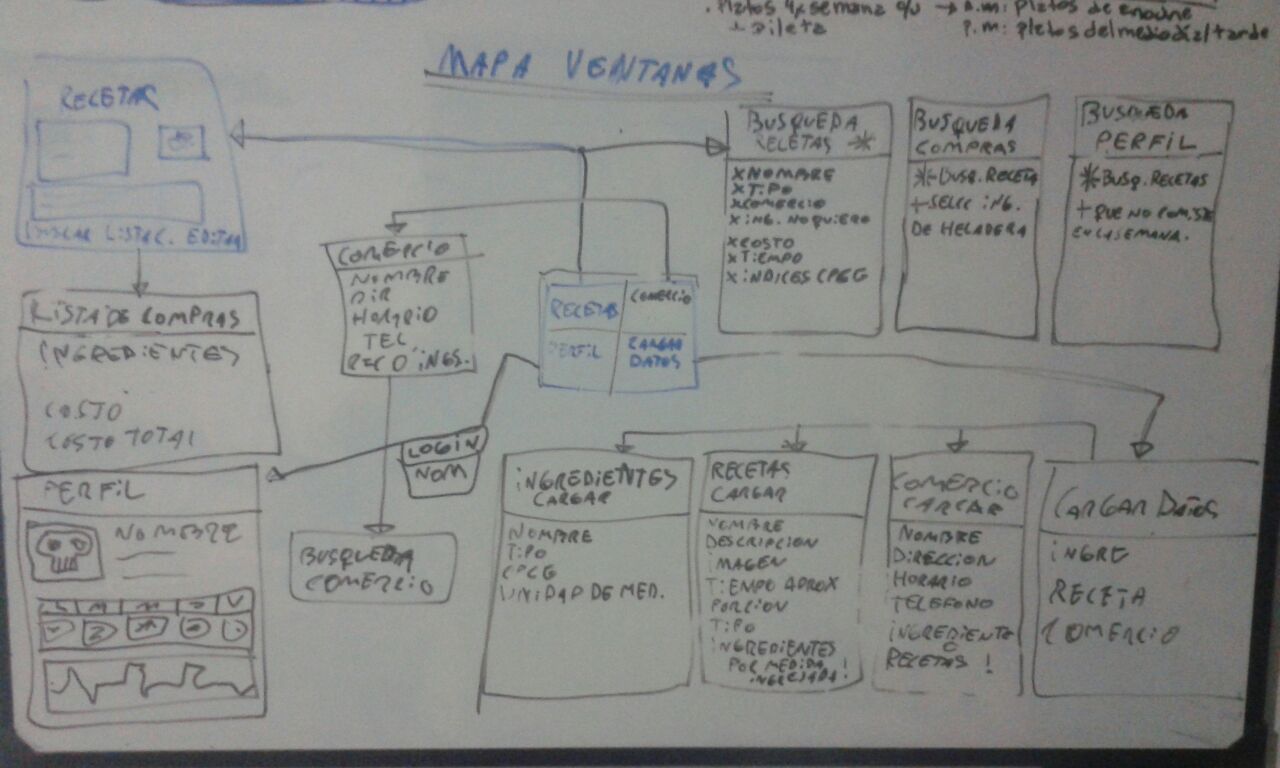 . Platos 4x semana c/u → A.M: platos de anoche
P.M: platos del mediodía/tarde
MAPA VENTANAS
RECETAS
BUSCAR LISTAC. EDITAR
LISTA DE COMPRAS
INGREDIENTES
COSTO
COSTO TOTAL
PERFIL
NOMBRE
L M M J V
COMERCIO
NOMBRE
DIR
HORARIO
TEL
REC O INGS.
BUSQUEDA
COMERCIO
LOGIN
NOM
RECETAS
COMERCIO
PERFIL
CARGAR
DATOS
BUSQUEDA
RECETAS *
X NOMBRE
X TIPO
X COMERCIO
X ING. NO QUIERO
X COSTO
X TIEMPO
X INDICES CPCG
BUSQUEDA
COMPRAS
* BUSQ. RECETA
+ SELEC ING.
DE HELADERA
BUSQUEDA
PERFIL
* BUSQ. RECETAS
+ QUE NO COMISTE
EN LA SEMANA.
INGREDIENTES
CARGAR
NOMBRE
TIPO
CPCG
UNIDAD DE MED.
RECETAS
CARGAR
NOMBRE
DESCRIPCION
IMAGEN
TIEMPO APROX
PORCION
TIPO
INGREDIENTES
POR MEDIDA !
INGRESADA!
COMERCIO
CARGAR
NOMBRE
DIRECCION
HORARIO
TELEFONO
INGREDIENTE
O
RECETAS !
CARGAR DATOS
INGRE
RECETA
COMERCIO